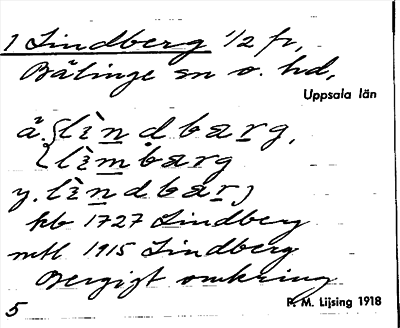 1 Lindberg 1/2 fr,
Bälinge sn o. hd,
Uppsala län
ä. { lìndbærg,
{ lìmbærg
y. lìndbær)
kb 1727 Lindberg
mtl 1915 Lindberg
Bergigt omkring
5 P. M. Lijsing 1918